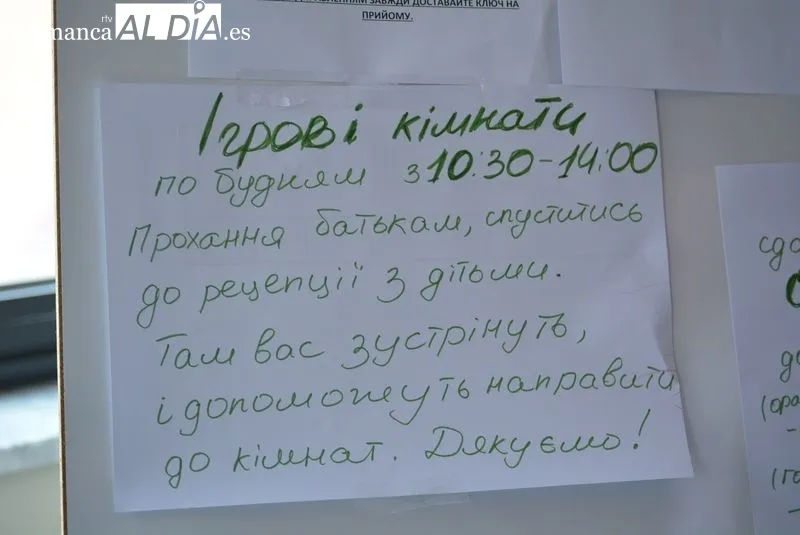 rtv
mancaALDÍA.es
ЗАВЖДИ ДОСТАВАЙТЕ КЛЮЧ НА
ПРИЙОМУ.
Ігрові кімнати
по будням з 10:30-14:00
Прохання батькам, спуститись
до рецепції з дітьми.
Там вас зустрінуть,
і допоможуть направити
до кімнат. Дякуємо!